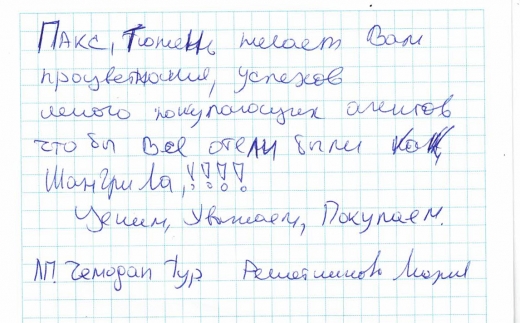 Пакс, Тюмень желает Вам
процветания, успехов
много покупающих агентов
что бы Все отели были как
Шангрила, !!!!
Ценим, Уважаем, Покупаем.
Чемодан Тур Решетникова Мария